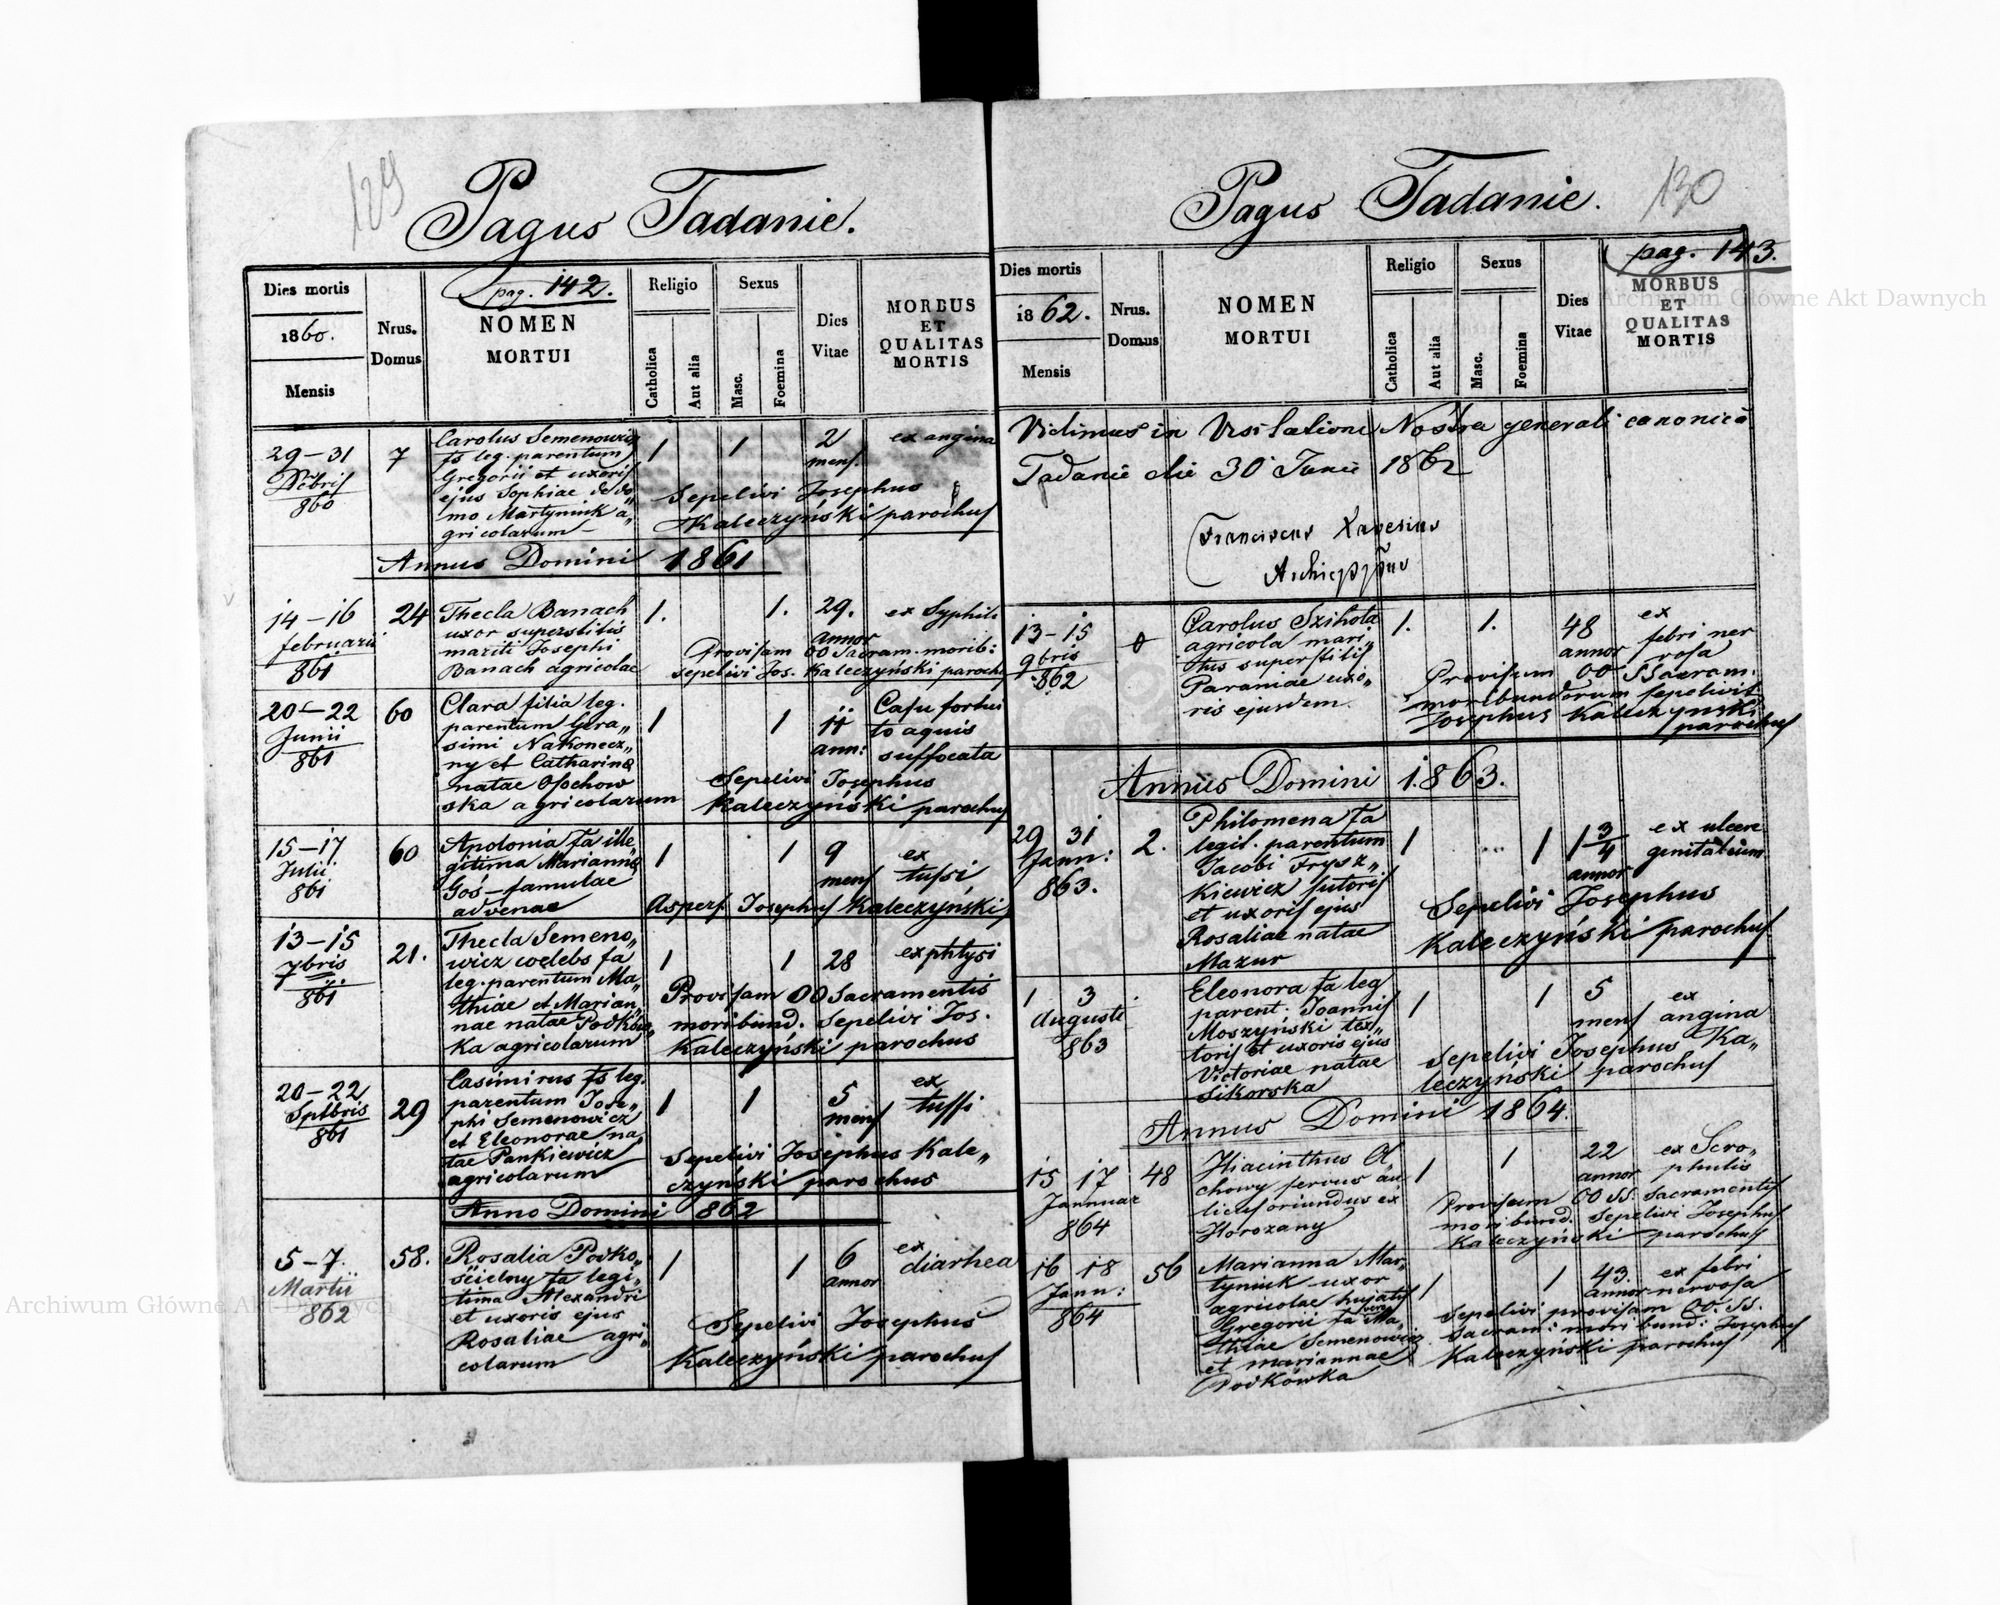 129
Pagus Tadanie.
pag. 142.
Dies mortis
1860.
Mensis
Nrus.
Domus
NOMEN
MORTUI
Religio
Catholica
Aut alia
Sexus
Masc.
Foemina
Dies
Vitae
MORBUS
ET
QUALITAS
MORTIS
29-31
Xbris
860
7
Carolus Semenowicz
fs leg. parentum
Gregorii et uxoris
ejus Sophiae de do„
mo Martyniuk a„
gricolarum
1 1
2
mens.
ex angina
Sepelivi Josephus
Kaleczyński parochus
Annus Domini 1861
14-16
februarii
861
24
Thecla Banach
uxor superstitis
mariti Josephi
Banach agricolae
1. 1.
29.
annor
ex Syphili
Provisam OO Sacram. morib:
sepelivi Jos. Kaleczyński paroch
20-22
Junii
861
60
Clara filia leg.
parentum Gera„
simi Nakonecz„
ny et Catharina
natae Osochow
ska agricolarum
1 1
11
ann:
Casu fortui
to aquis
suffocata
Sepelivi Josephus
Kaleczyński parochus
15-17
Julii
861
60
Apolonia fa ille„
gitima Marianna
Gos - famulae
advenae
1 1
9
mens
ex
tussi
Aspers. Josephus Kaleczyński
13-15
7bris
861
21.
Thecla Semeno„
wicz coelebs fa
leg. parentum Ma„
thiae et Marian„
nae natae Podków„
ka agricolarum
1 1
28
ex phtysi
Provisam OO Sacramentis
moribund. Sepelivi Jos.
Kaleczyński parochus
20-22
Septbris
861
29
Casimirus fs leg.
parentum Jose„
phi Semenowicz
et Eleonorae na„
tae Pankiewicz
agricolarum
1 1
5
mens
ex
tussi
Sepelivi Josephus Kale„
czyński parochus
Anno Domini 862
5-7.
Martii
862
58.
Rosalia Podko„
ścielny fa legi„
tima Alexandri
et uxoris ejus
Rosaliae agri„
colarum
1 1
6
annor
ex
diarhea
Sepelivi Josephus
Kaleczyński parochus
130
Pagus Tadanie.
pag. 143.
Dies mortis
1862.
Mensis
Nrus.
Domus
NOMEN
MORTUI
Religio
Catholica
Aut alia
Sexus
Masc.
Foemina
Dies
Vitae
MORBUS
ET
QUALITAS
MORTIS
Vidimus in Visitatione Nostra generali canonica
Tadanie die 30 Junii 1862
Franciscus Xaverius
Archieppus
13-15
9bris
862
Carolus Szihota
agricola mari„
tus superstitis
Paraniae uxo„
ris ejusdem.
1. 1.
48
annor
ex
febri ner
vosa
Provisum OO SSacram.
moribundorum sepelivit
Josephus Kaleczynski
parochus
Annus Domini 1863.
29 31
Jann:
863.
2.
Philomena fa
legit. parentum
Jacobi Frysz„
kiewicz sutoris
et uxoris ejus
Rosaliae natae
Mazur
1 1
1 3/4
annor
ex ulcere
genitalium
Sepelivi Josephus
Kaleczyński parochus
1 3
Augusti
863
Eleonora fa leg
parent. Joannis
Moszyński tex„
toris et uxoris ejus
Victoriae natae
Sikorska
1 1
5
mens
ex
angina
Sepelivi Josephus Ka„
leczyński parochus
Annus Domini 1864.
15 17
Jannuar
864
48
Hiacinthus Ol
chowy servus au
licus oriundus ex
Horozany
1 1
22
annor
ex Scro„
phulis
Provisum OO SS. Sacramentis
moribund. Sepelivi Josephus
Kaleczyński parochus
16 18
Jann:
864
56
Marianna Mar„
tyniuk uxor
agricolae hujatis
Gregorii fa vero Ma„
thiae Semenowicz
et mariannae
Podkówka
1 1
43.
annor
ex febri
nervosa
Sepelivi provisam OO. SS.
Sacram: moribund: Josephus
Kaleczyński parochus
Archiwum Główne Akt Dawnych
Archiwum Główne Akt Dawnych